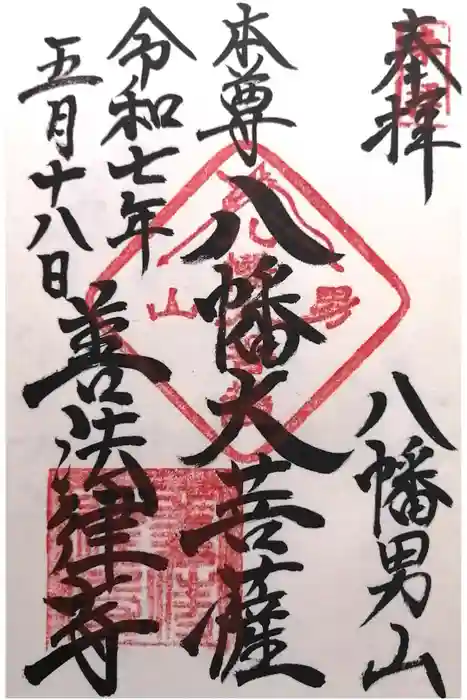 奉拝
八幡男山
本尊
八幡大菩薩
令和七年
五月十八日
善法律寺